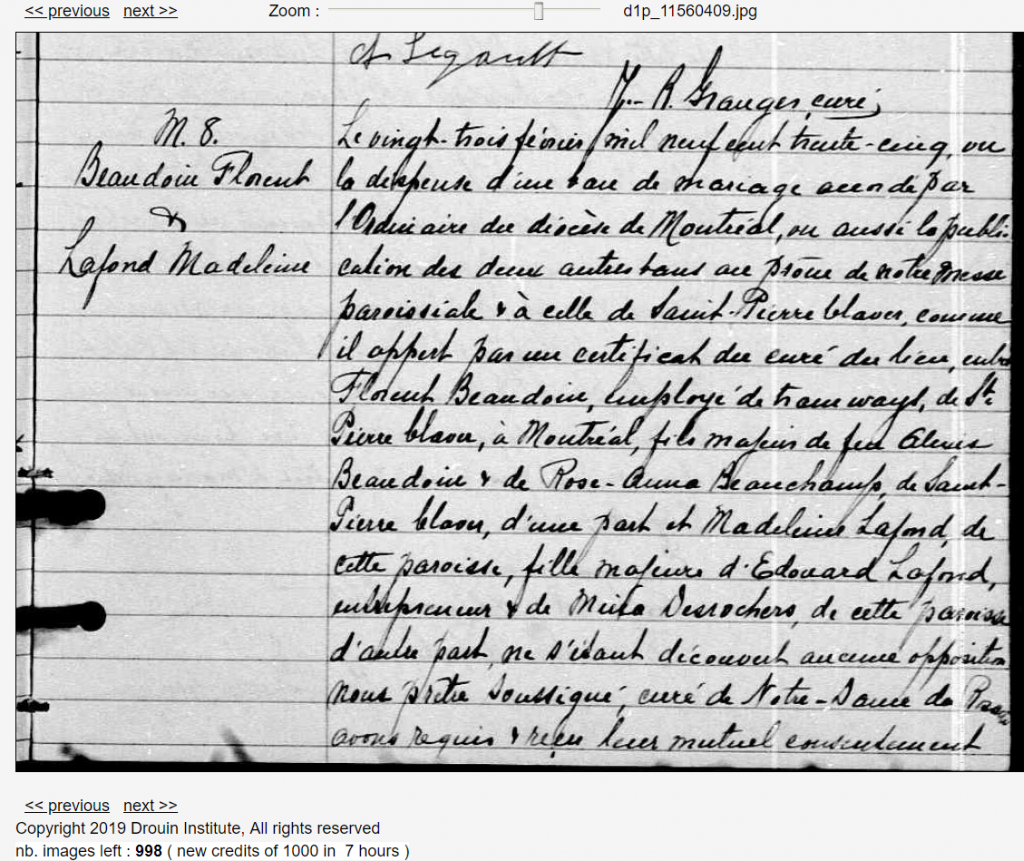 << previous next >> Zoom : d1p_11560409.jpg
A Legault
J.- R. Granger, curé,
M. 8.
Beaudoin Florent
&
Lafond Madeleine
Le vingt-trois février mil neuf cent trente-cinq, vu
la dispense d'un ban de mariage accordé par
l'Ordinaire du diocèse de Montréal, vu aussi la publi-
cation des deux autres bans au prône de notre messe
paroissiale & à celle de Saint-Pierre Claver, comme
il appert par un certificat du curé du lieu, entre
Florent Beaudoin, employé de tramways, de St.
Pierre Claver, à Montréal, fils majeur de feu Alexis
Beaudoin & de Rose-Anna Beauchamp, de Saint-
Pierre Claver, d'une part et Madeleine Lafond, de
cette paroisse, fille majeure d'Edouard Lafond,
entrepreneur & de Desrochers, de cette paroisse
d'autre part, ne s'étant découvert aucune opposition
nous prêtre soussigné, curé de Notre-Dame du
avons requis & reçu leur mutuel consentement
<< previous next >>
Copyright 2019 Drouin Institute, All rights reserved
nb. images left : 998 ( new credits of 1000 in 7 hours )